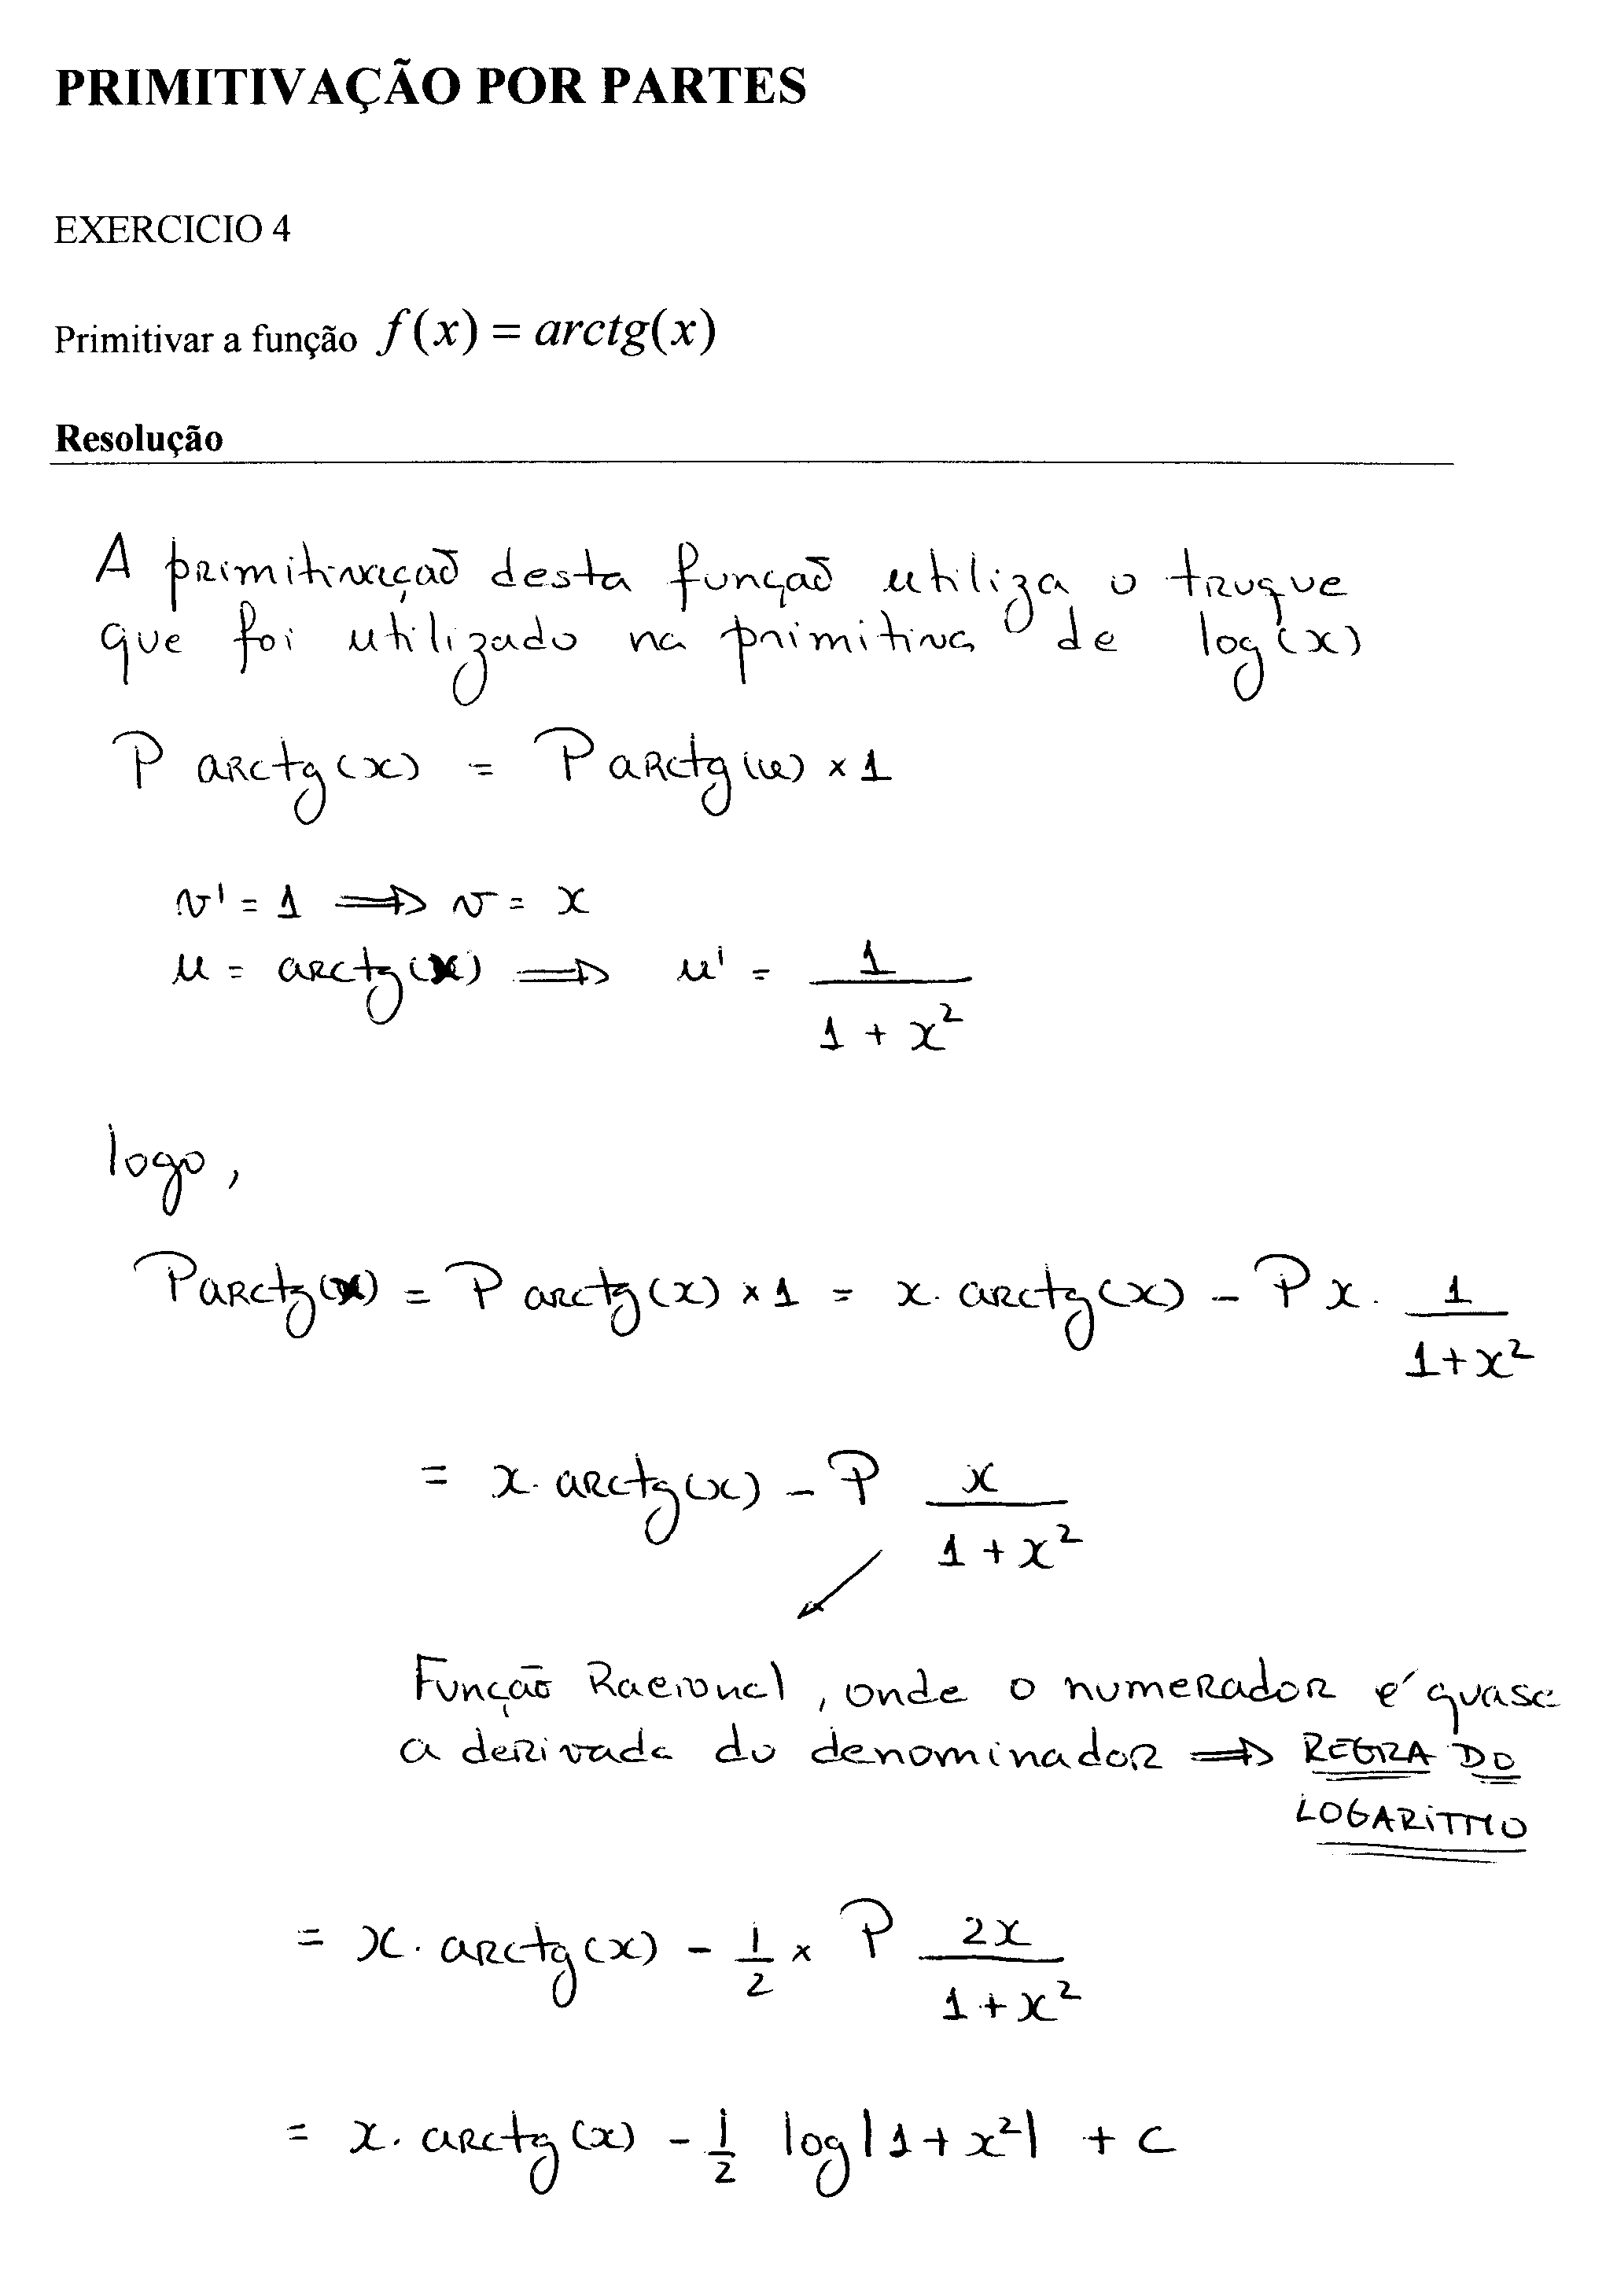 PRIMITIVAÇÃO POR PARTES
EXERCICIO 4
Primitivar a função f(x) = arctg(x)
Resolução
A primitivação desta função utiliza o truque
que foi utilizado na primitiva de log(x)
P arctg(x) = P arctg(x) × 1
v' = 1 ⟹ v = x
u = arctg(x) ⟹ u' = 1/(1 + x²)
logo,
P arctg(x) = P arctg(x) × 1 = x. arctg(x) - P x. 1/(1+x²)
= x. arctg(x) - P x/(1+x²)
Função Racional, onde o numerador é quase
a derivada do denominador ⟹ REGRA DO
LOGARITMO
= x. arctg(x) - 1/2 × P 2x/(1+x²)
= x. arctg(x) - 1/2 log|1+x²| + c